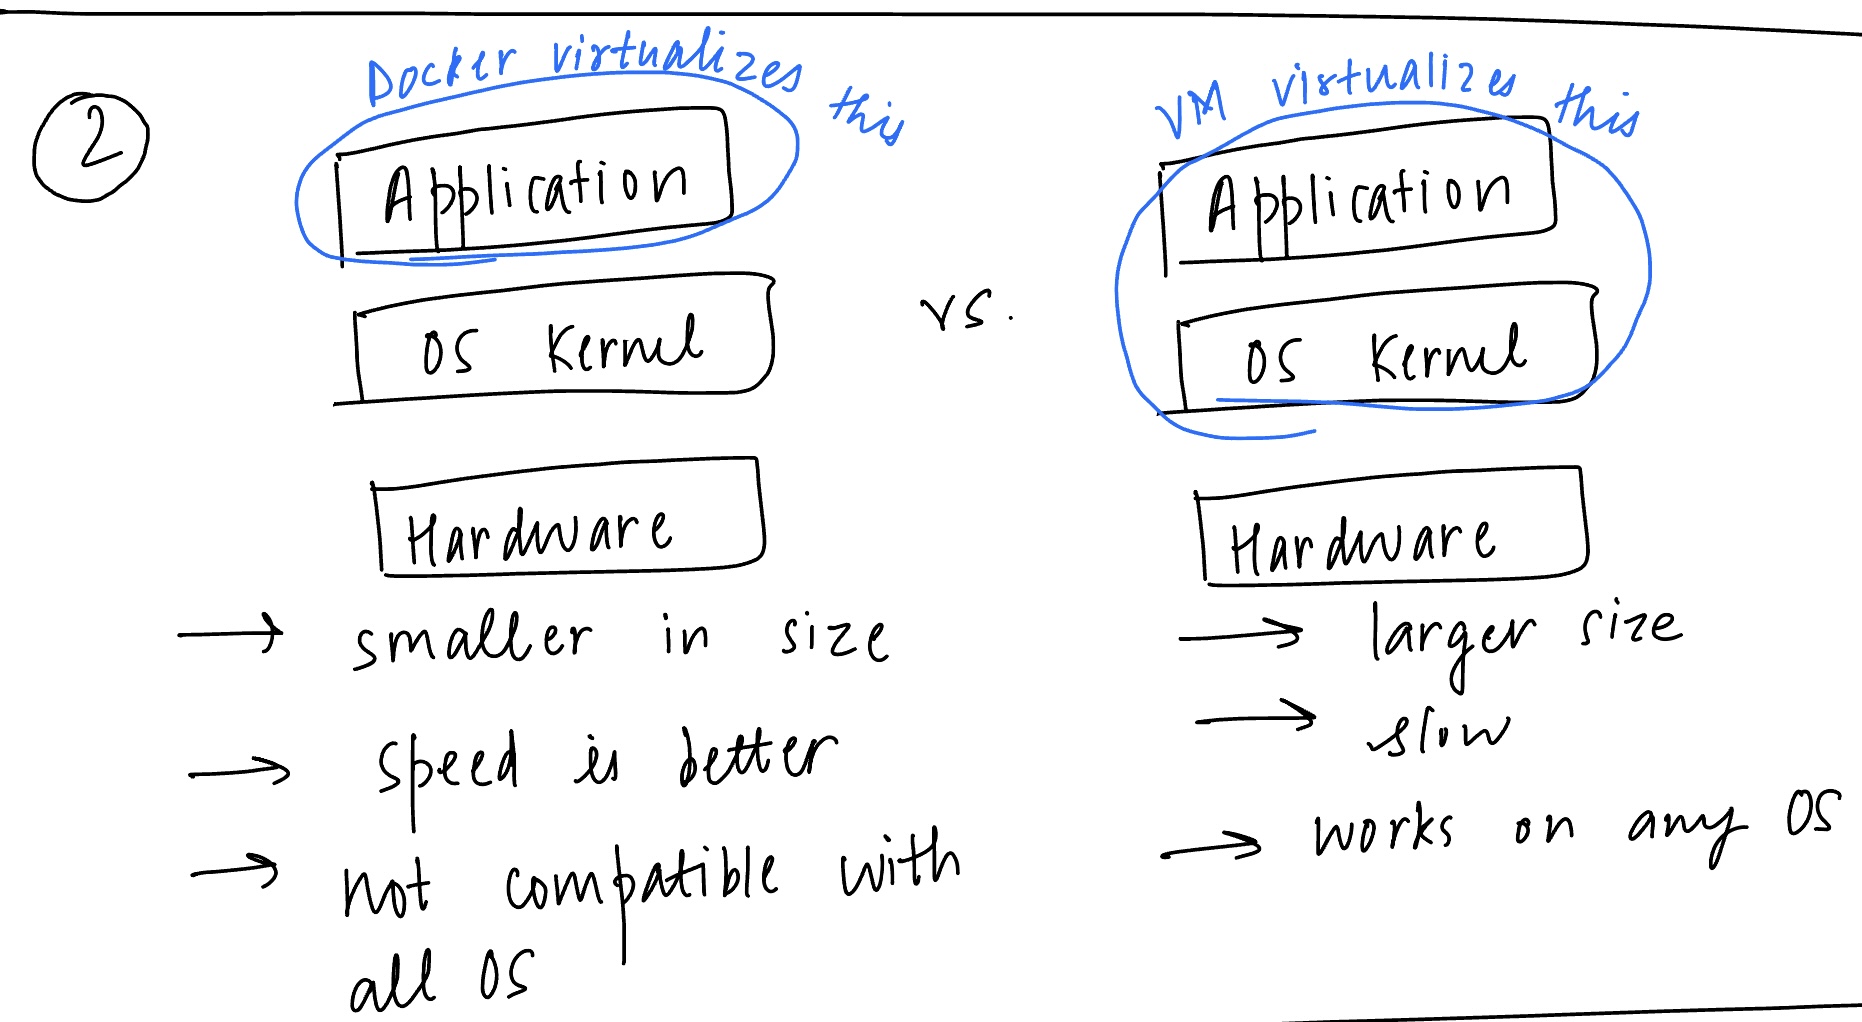 2
Docker virtualizes this
Application
OS Kernel
Hardware
→ smaller in size
→ speed is better
→ not compatible with
all OS
vs.
VM virtualizes this
Application
OS Kernel
Hardware
→ larger size
→ slow
→ works on any OS